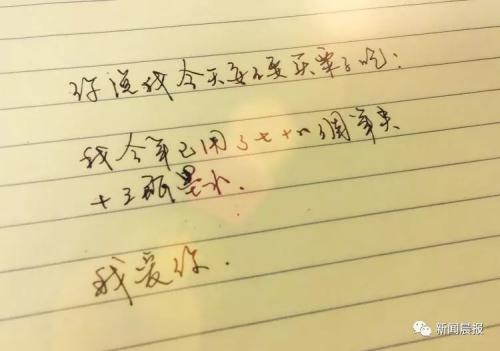 你说我今天要不要买栗子吃：
我今年已用了七十八个笔头
十三瓶墨水.
我爱你.
新闻晨报